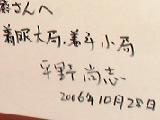 さんへ
着眼大局、着手小局
平野尚志
2006年10月28日